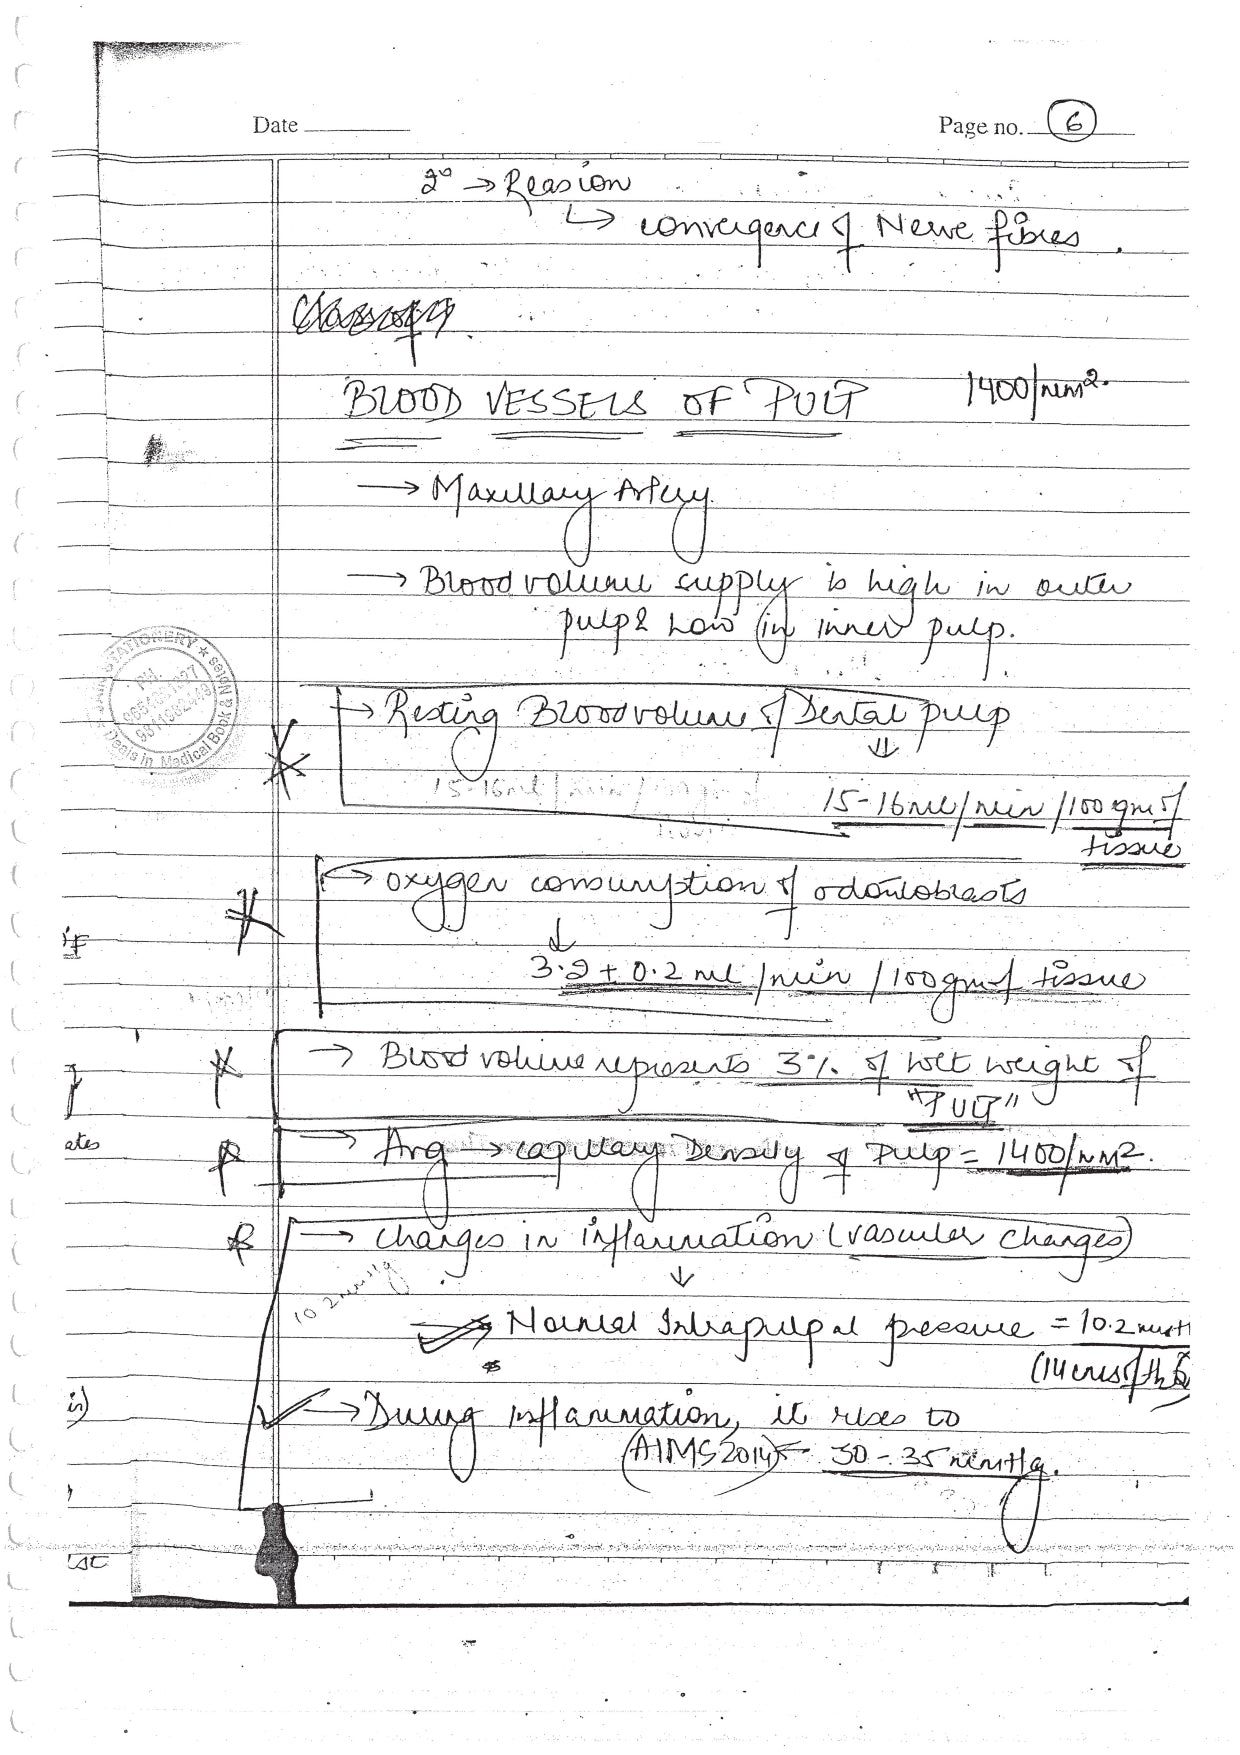 Date
Page no. 6
2° → Reasion
↳ convergence of Nerve fibres.
BLOOD VESSELS OF PULP 1400/mm².
→ Maxillary Artery
→ Blood volume supply is high in outer
pulp & Low in inner pulp.
STATIONERY ★
PH.
Deals in Medical Book & Notes
→ Resting Blood volume of Dental pulp
⇓
15-16ml/min/100gm of
tissue
→ oxygen consumption of odontoblasts
↓
if
3.2 ± 0.2 ml/min/100gm of tissue
→ Blood volume represents 3% of wet weight of
"PULP"
ates
→ Avg → capillary Density of Pulp = 1400/mm².
→ changes in inflammation (vascular changes)
↓
10.2 mmHg
→ Normal Intrapulpal pressure = 10.2 mmH
(14 cms of H₂O
is)
→ During inflammation, it rises to
(AIMS 2014) ← 30-35 mmHg.